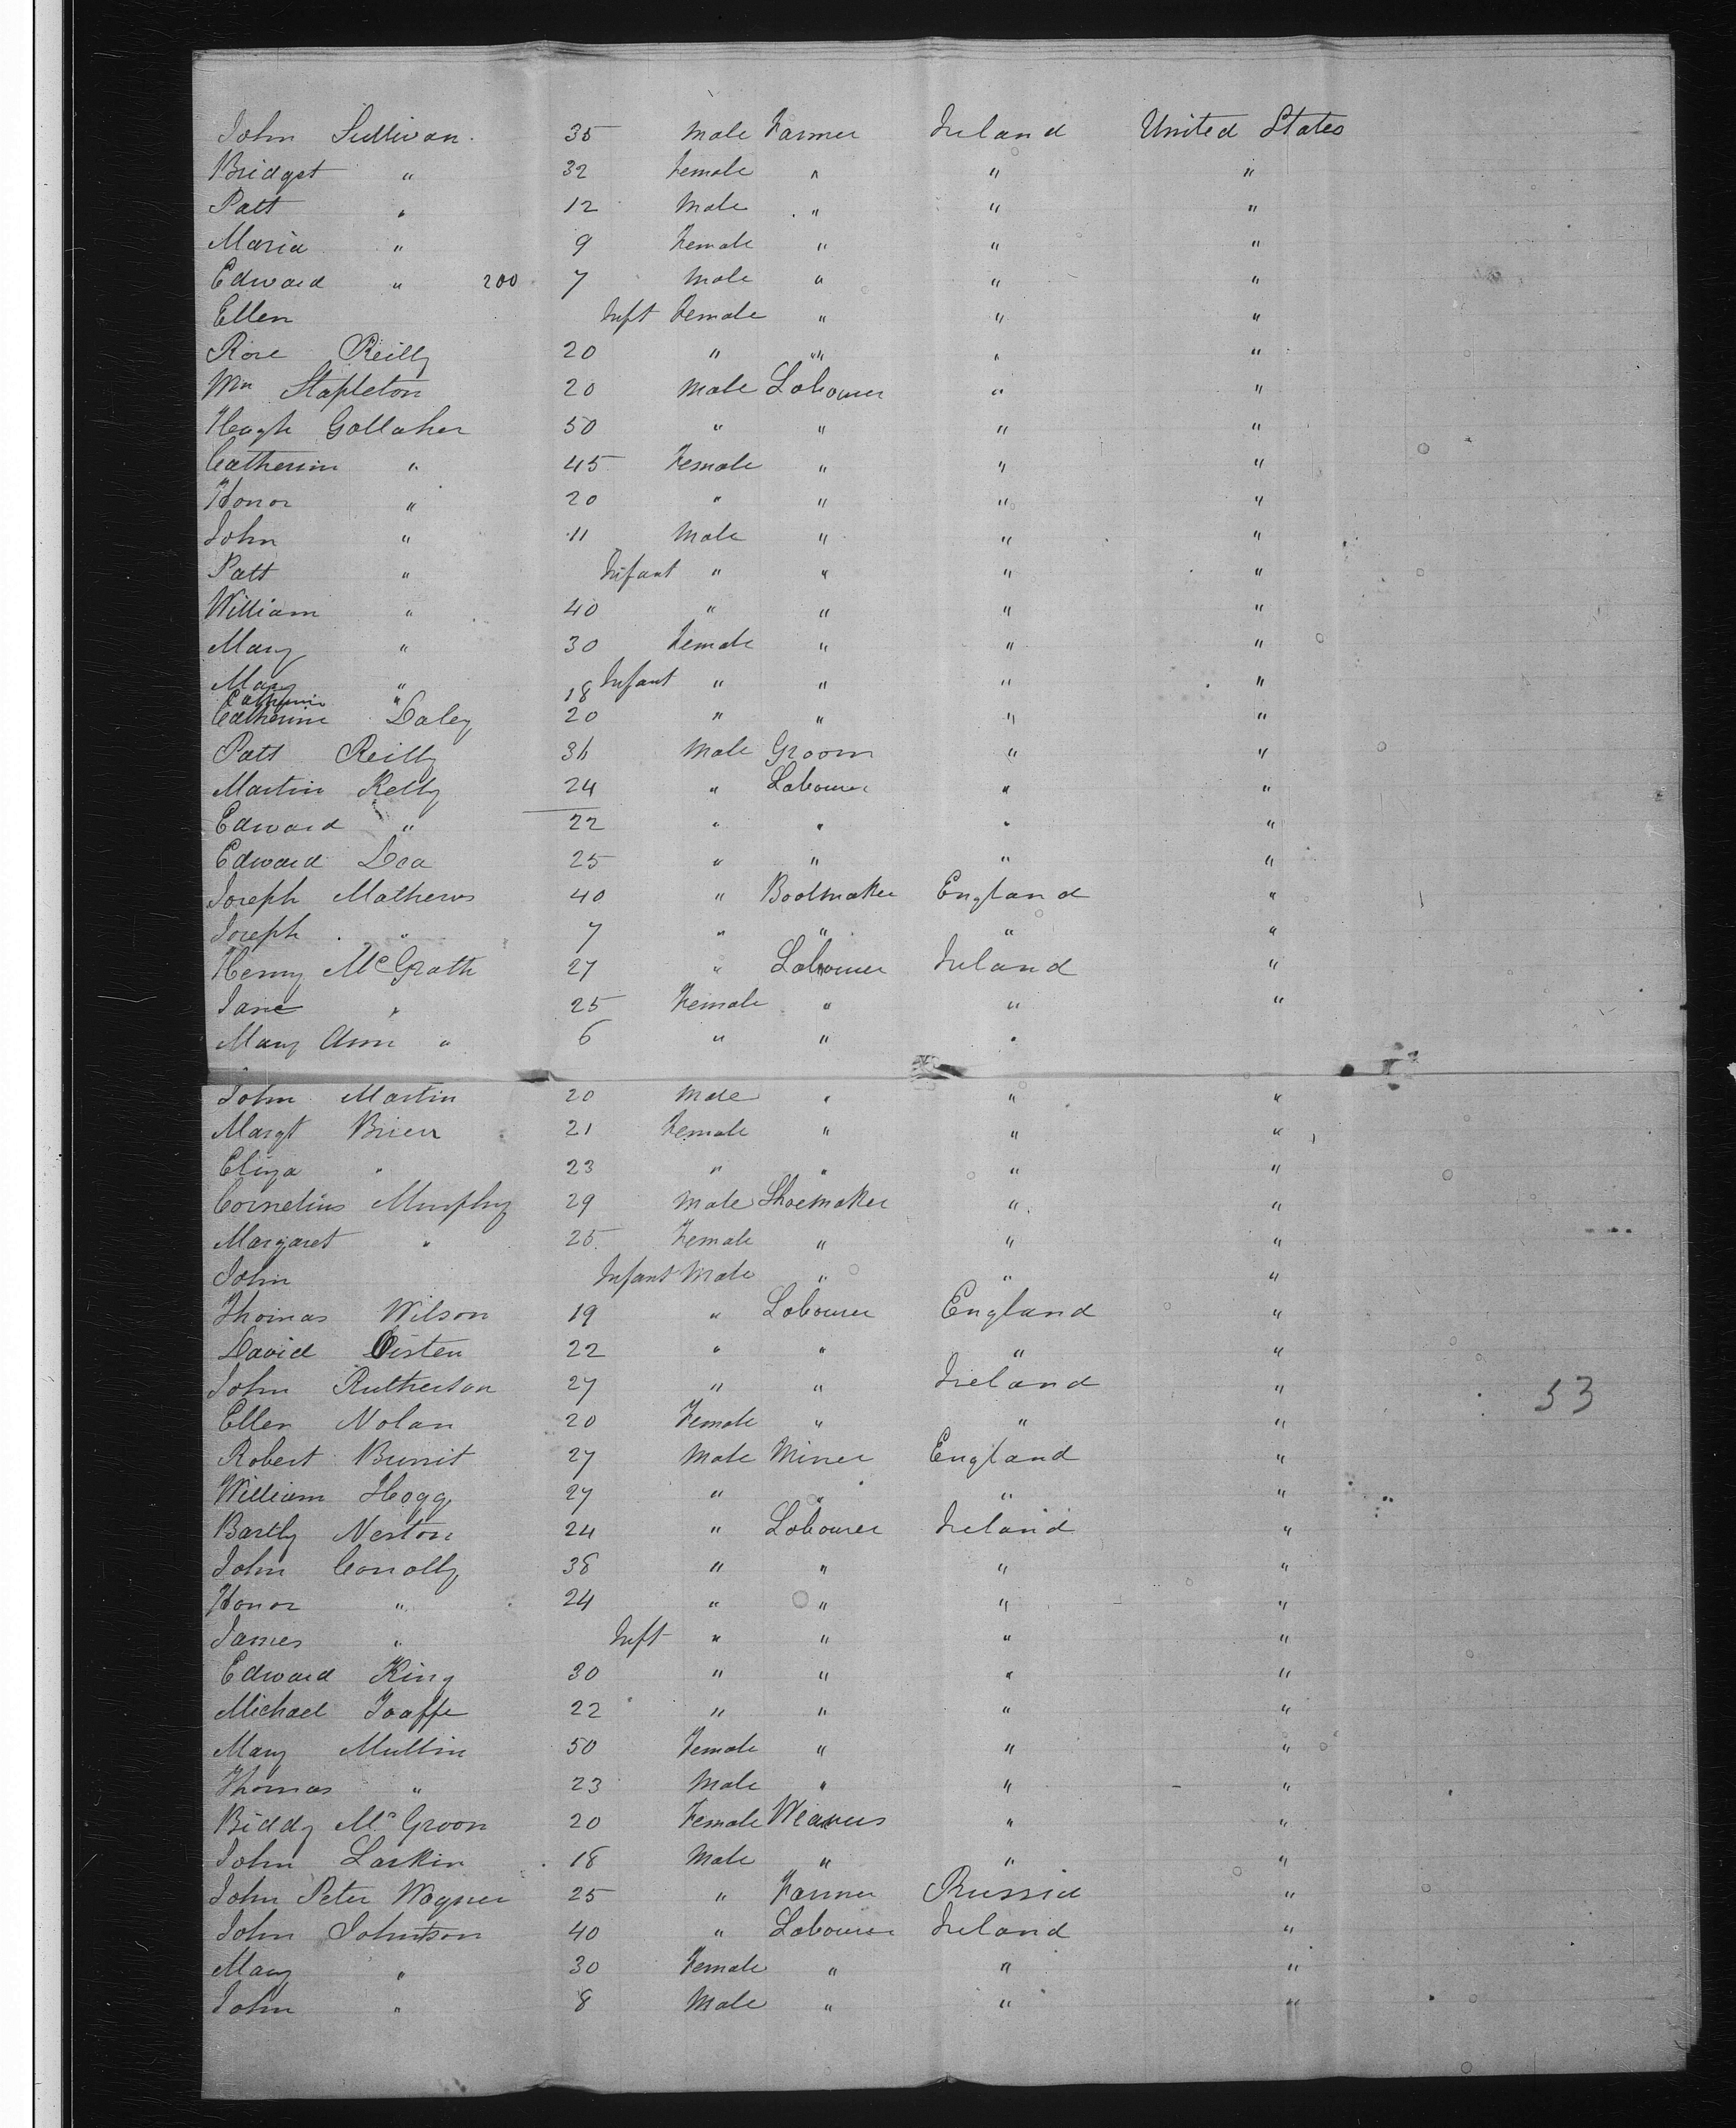 John Sullivan. 35 Male Farmer Ireland United States
Bridget " 32 Female " " "
Patt " 12 Male " " "
Maria " 9 Female " " "
Edward " 200 7 Male " " "
Ellen Inft Female " " "
Rose Reilly 20 " " " "
Wm Stapleton 20 Male Labourer " "
Hugh Gallaher 50 " " " "
Catherine " 45 Female " " "
Honor " 20 " " " "
John " 11 Male " " "
Patt " Infant " " " "
William " 40 " " " "
Mary " 30 Female " " "
Mary " Infant " " " "
Catherine " 18
Catherine Daley 20 " " " "
Patt Reilly 36 Male Groom " "
Martin Kelly 24 " Labourer " "
Edward " 22 " " " "
Edward Dea 25 " " " "
Joseph Mathews 40 " Bootmaker England "
Joseph " 7 " " " "
Henry McGrath 27 " Labourer Ireland "
Jane " 25 Female " " "
Mary Ann " 6 " " "
John Martin 20 Male " " "
Margt Brien 21 Female " " "
Eliza " 23 " " " "
Cornelius Murphy 29 Male Shoemaker " "
Margaret " 25. Female " " "
John Infant Male " " "
Thomas Wilson 19 " Labourer England "
David 22 " " " "
John Rutherson 27 " " Ireland "
Ellen Nolan 20 Female " " "
Robert 27 Male Miner England "
William Hogg 27 " " " "
Bartly Neston 24 " Labourer Ireland "
John Conolly 38 " " " "
Honor " 24 " " " "
James " Inft " " " "
Edward King 30 " " " "
Michael 22 " " " "
Mary Mullin 50 Female " " "
Thomas " 23 Male " " "
Biddy Mc Groon 20 Female Weavers " "
John Larkin 18 Male " " "
John Peter Wagner 25 " Farmer Prussia "
John Johnston 40 " Labourer Ireland "
Mary " 30 Female " " "
John " 8 Male " " "
53